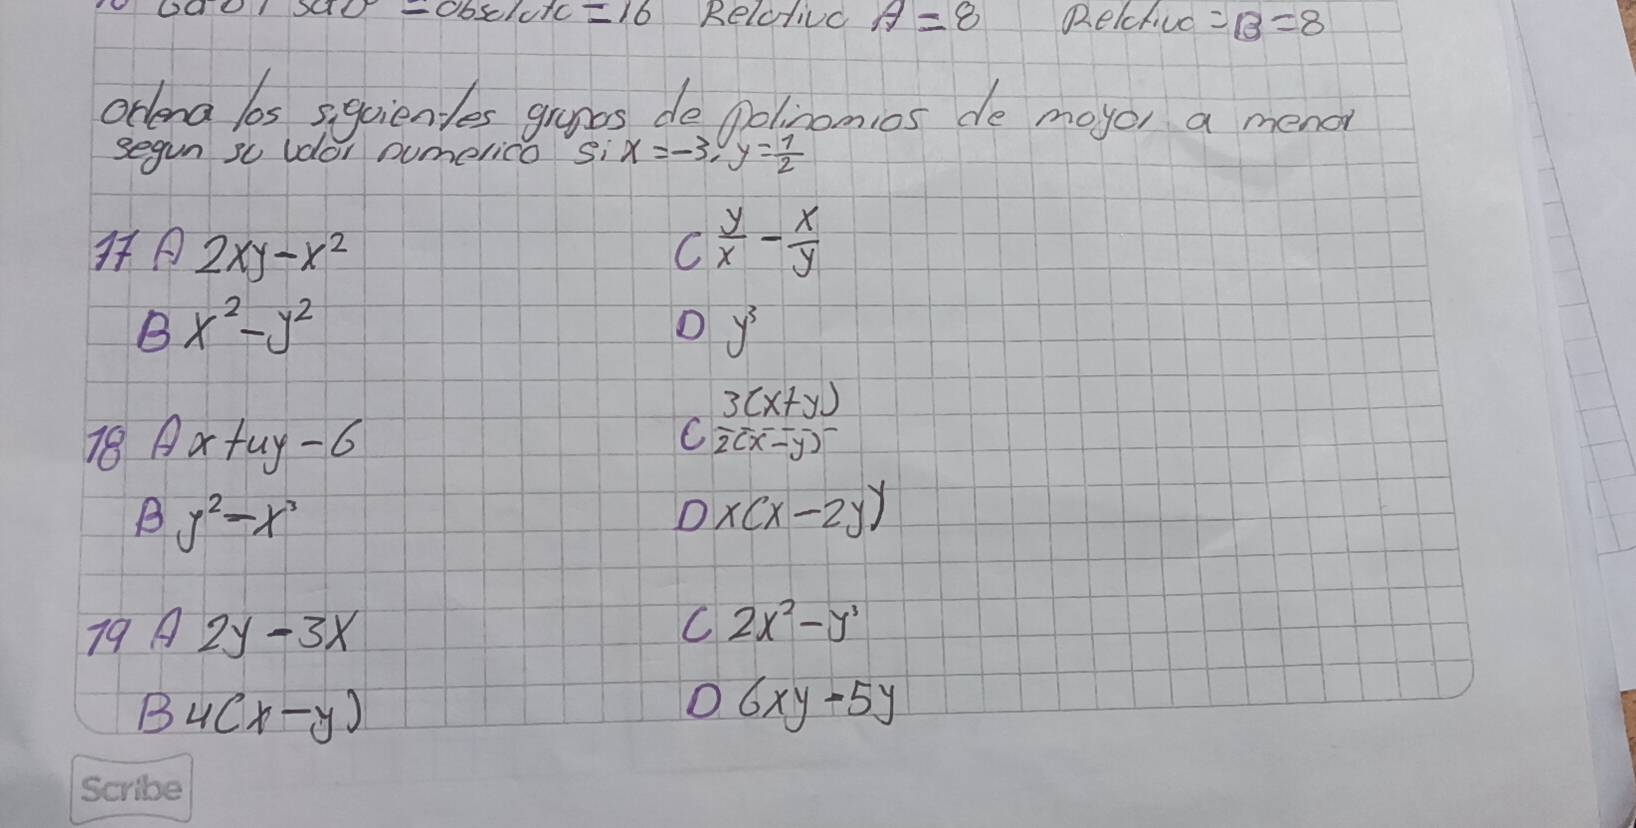 =16 Relativo A=8 Relativo =B=8
ordena los siguientes grupos de polinomios de mayor a menor
segun su valor numerico si x=-3, y=1/2
17 A 2xy-x²
C y/x - x/y
B x²-y²
D y³
18 A x+4y-6
C 3(x+y)/2(x-y)
B y²-x³
D x(x-2y)
19 A 2y-3x
C 2x²-y³
B 4(x-y)
D 6xy-5y
Scribe